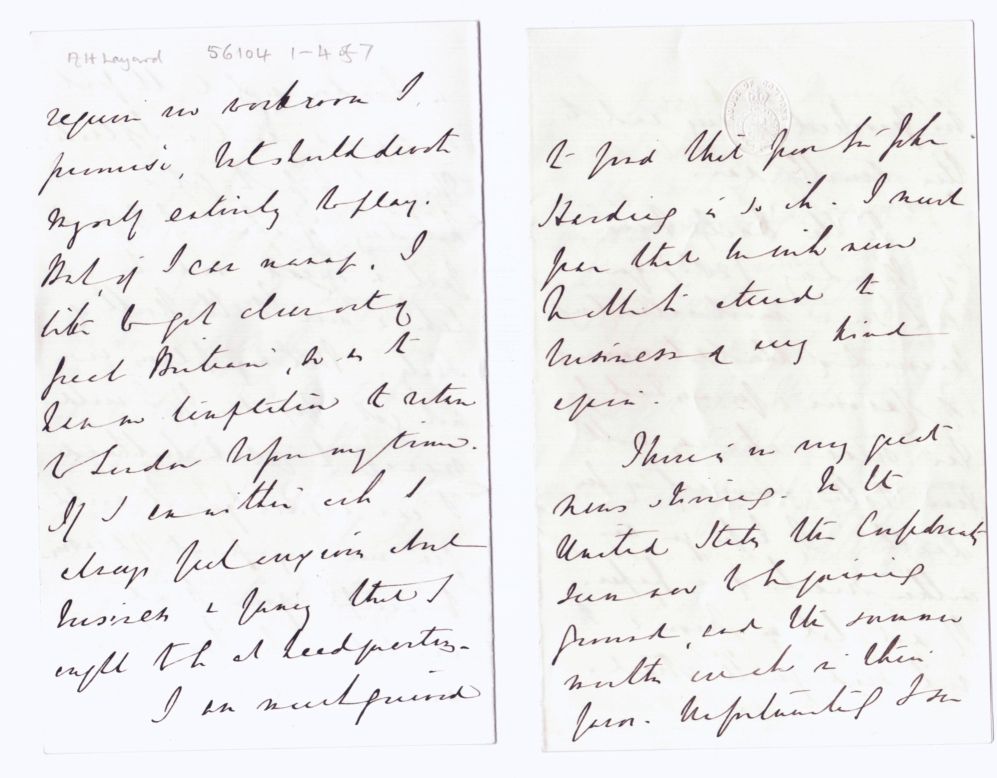 AH Layard 56104 1-4 of 7
require no workroom I
promise, but should devote
myself entirely to play.
But, if I can manage, I
like to get clear out of
Great Britain, so as to
have no temptation to return
to London before my time.
If I am within reach I
always feel anxious about
business & fancy that I
ought to be at headquarters.
I am much grieved
to find that poor Sir John
Harding is so ill. I must
fear that he will never
be able to attend to
business of any kind
again.
There is no very great
news stirring. In the
United States the Confederates
seem now to be gaining
ground, and the summer
months are all in their
favor. Unfortunately I see